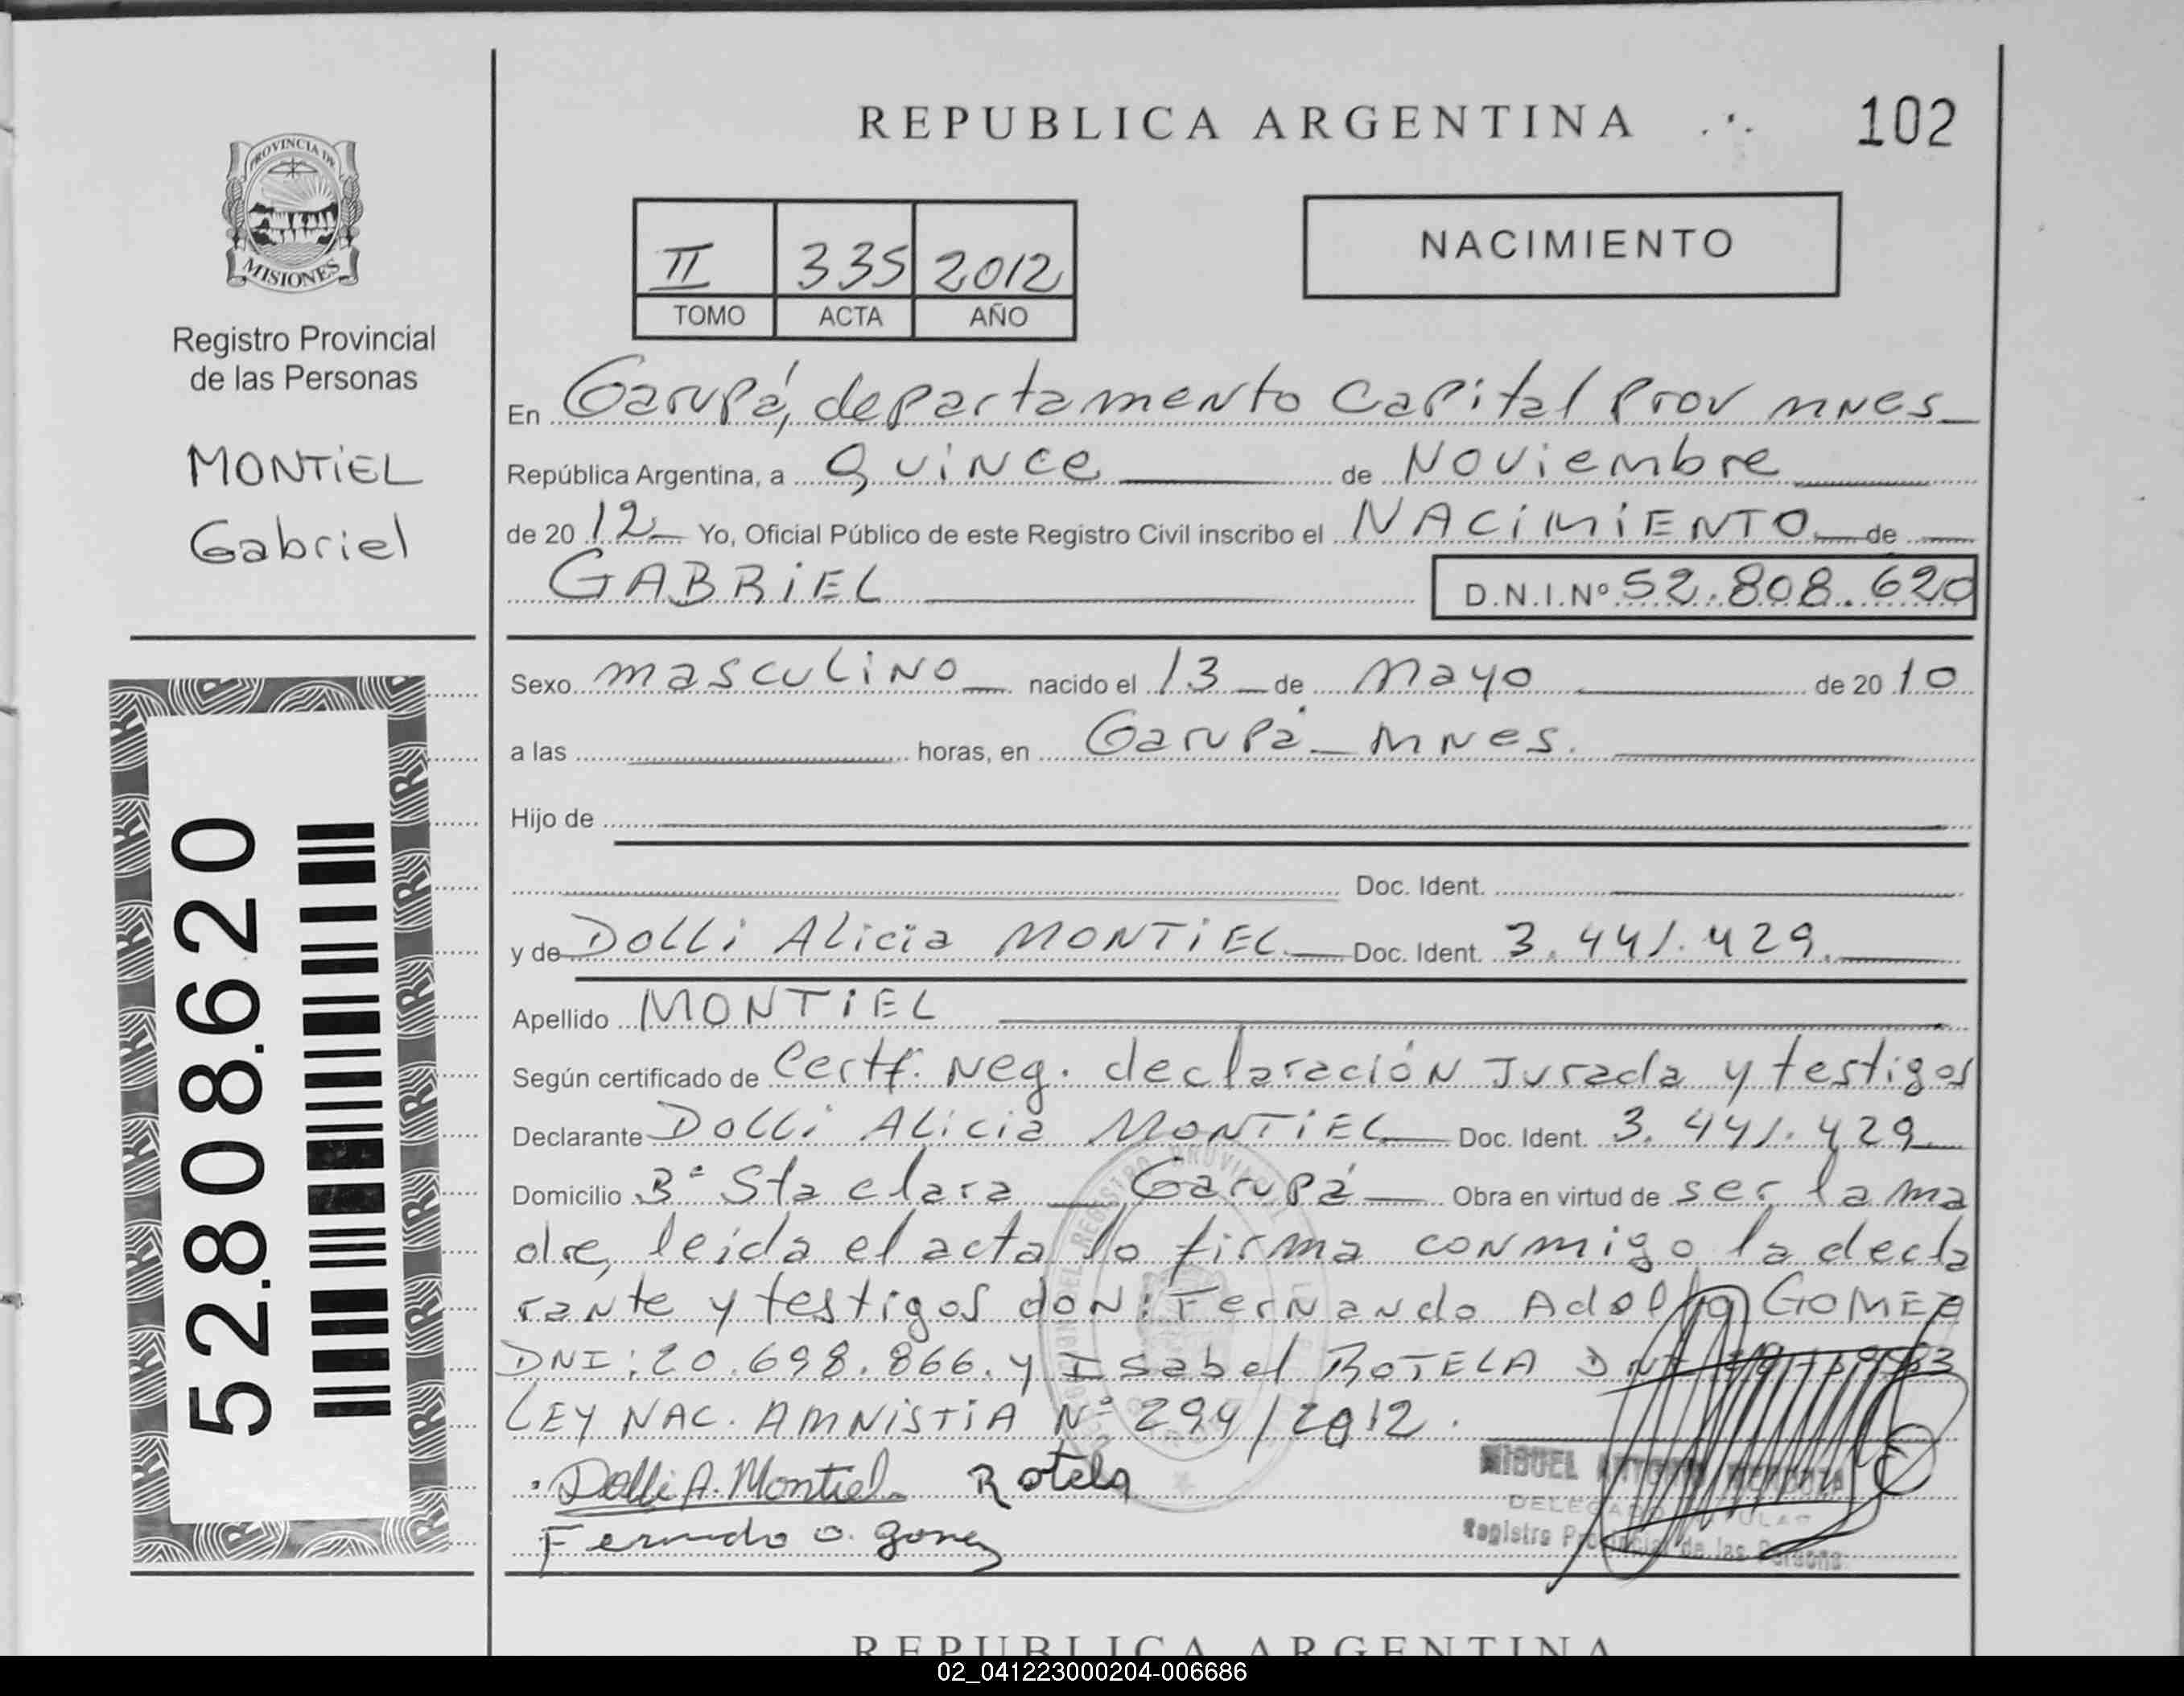 REPUBLICA ARGENTINA
102
PROVINCIA DE
MISIONES
Registro Provincial
de las Personas
MONTiEL
Gabriel
II 335 2012
TOMO ACTA AÑO
NACIMIENTO
En Garupá, departamento Capital Prov mnes
República Argentina, a Quince de Noviembre
de 20 12 Yo, Oficial Público de este Registro Civil inscribo el NACiMiENTO de
GABRiEL D.N.I.Nº 52.808.620
Sexo masculiNo nacido el 13 de Mayo de 20 10
a las horas, en Garupá - MNes.
Hijo de
Doc. Ident.
y de Dolli Alicia MONTiEL Doc. Ident. 3.441.429
Apellido MONTiEL
Según certificado de Certf. Neg. declaración Jurada y testigos
Declarante Dolli Alicia MONTiEL Doc. Ident. 3.441.429
Domicilio Bº Sta clara Garupá Obra en virtud de ser la ma
dre, leida el acta lo firma conmigo la decla
rante y testigos don: Fernando Adolfo GOMEZ
DNI: 20.698.866. y Isabel ROTELA DNI
LEY NAC. AMNiSTiA Nº 294/2012.
Dolli A. Montiel Rotela
MIGUEL ANTONIO MENDOZA
DELEGADO TITULAR
Registro Provincial de las Personas
52.808.620
REPUBLICA ARGENTINA
02_041223000204-006686